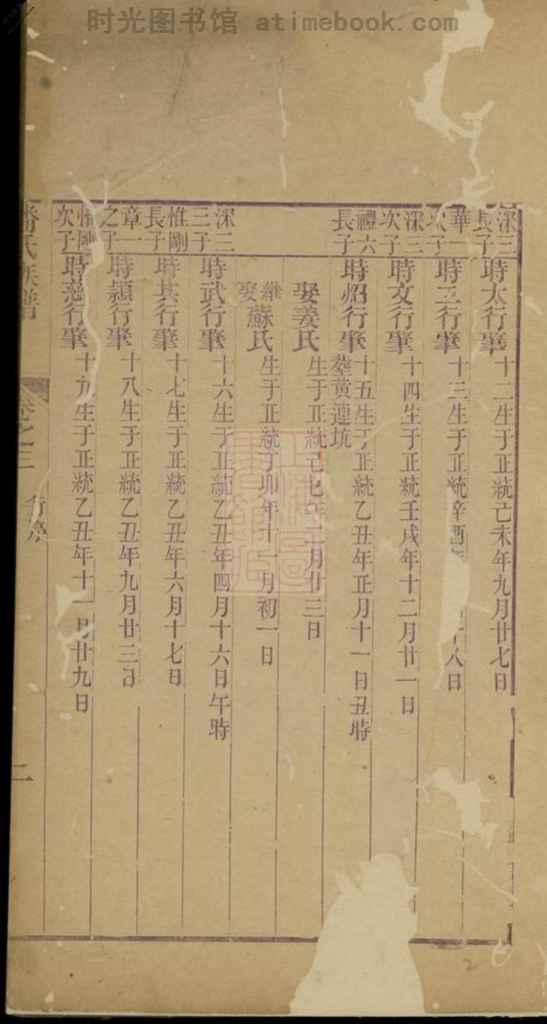 时光图书馆 www.atimebook.com
深三長子 時太行肇十二生于正統己未年九月廿七日
華一次子 時工行肇十三生于正統辛酉年 十八日
深三次子 時文行肇十四生于正統壬戌年十二月廿一日
禮六長子 時炤行肇十五生于正統乙丑年正月十一日丑時
葬黄連坑
娶姜氏生于正統己巳年 月廿三日
繼娶蘇氏生于正統丁卯年十一月初一日
深三三子 時武行肇十六生于正統乙丑年四月十六日午時
惟剛長子 時其行肇十七生于正統乙丑年六月十七日
章一之子 時顯行肇十八生于正統乙丑年九月廿三日
惟剛次子 時慈行肇十九生于正統乙丑年十一月廿九日
潘氏族譜 卷之三 行序 二